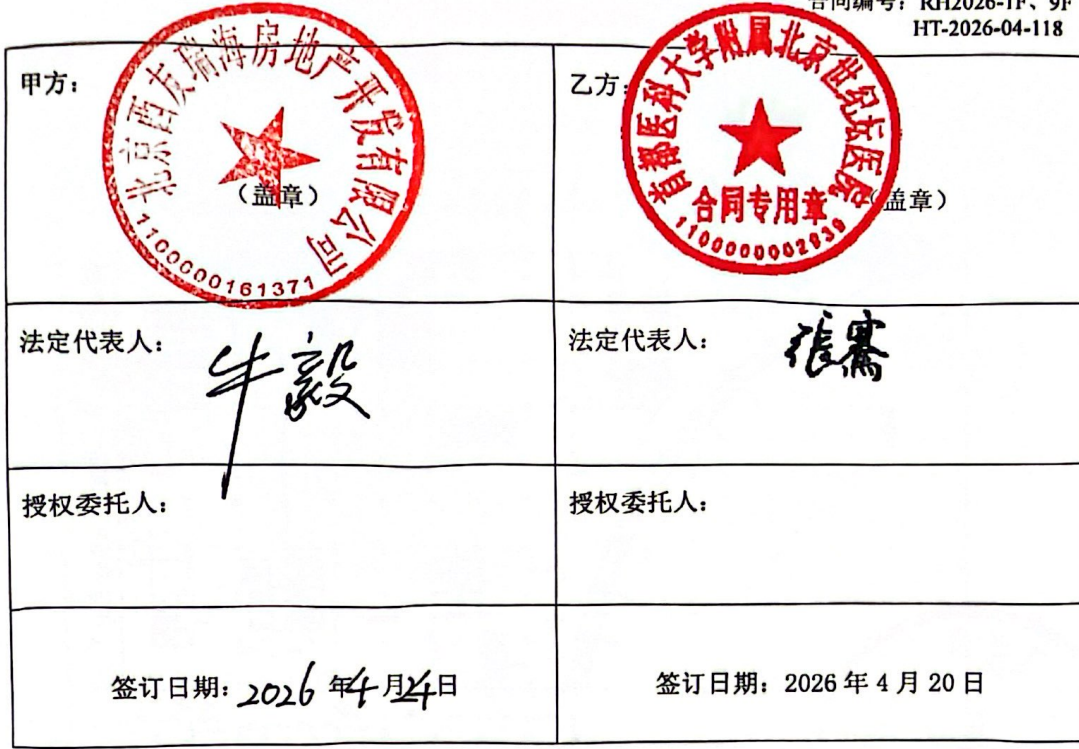 合同编号：RH2026-1F、9F
HT-2026-04-118
甲方：
北京西友瑞海房地产开发有限公司
（盖章）
1100000161371
乙方：
首都医科大学附属北京世纪坛医院
（盖章）
合同专用章
1100000002939
法定代表人：
牛毅
法定代表人：
张骞
授权委托人：
授权委托人：
签订日期：2026年4月24日
签订日期：2026年4月20日